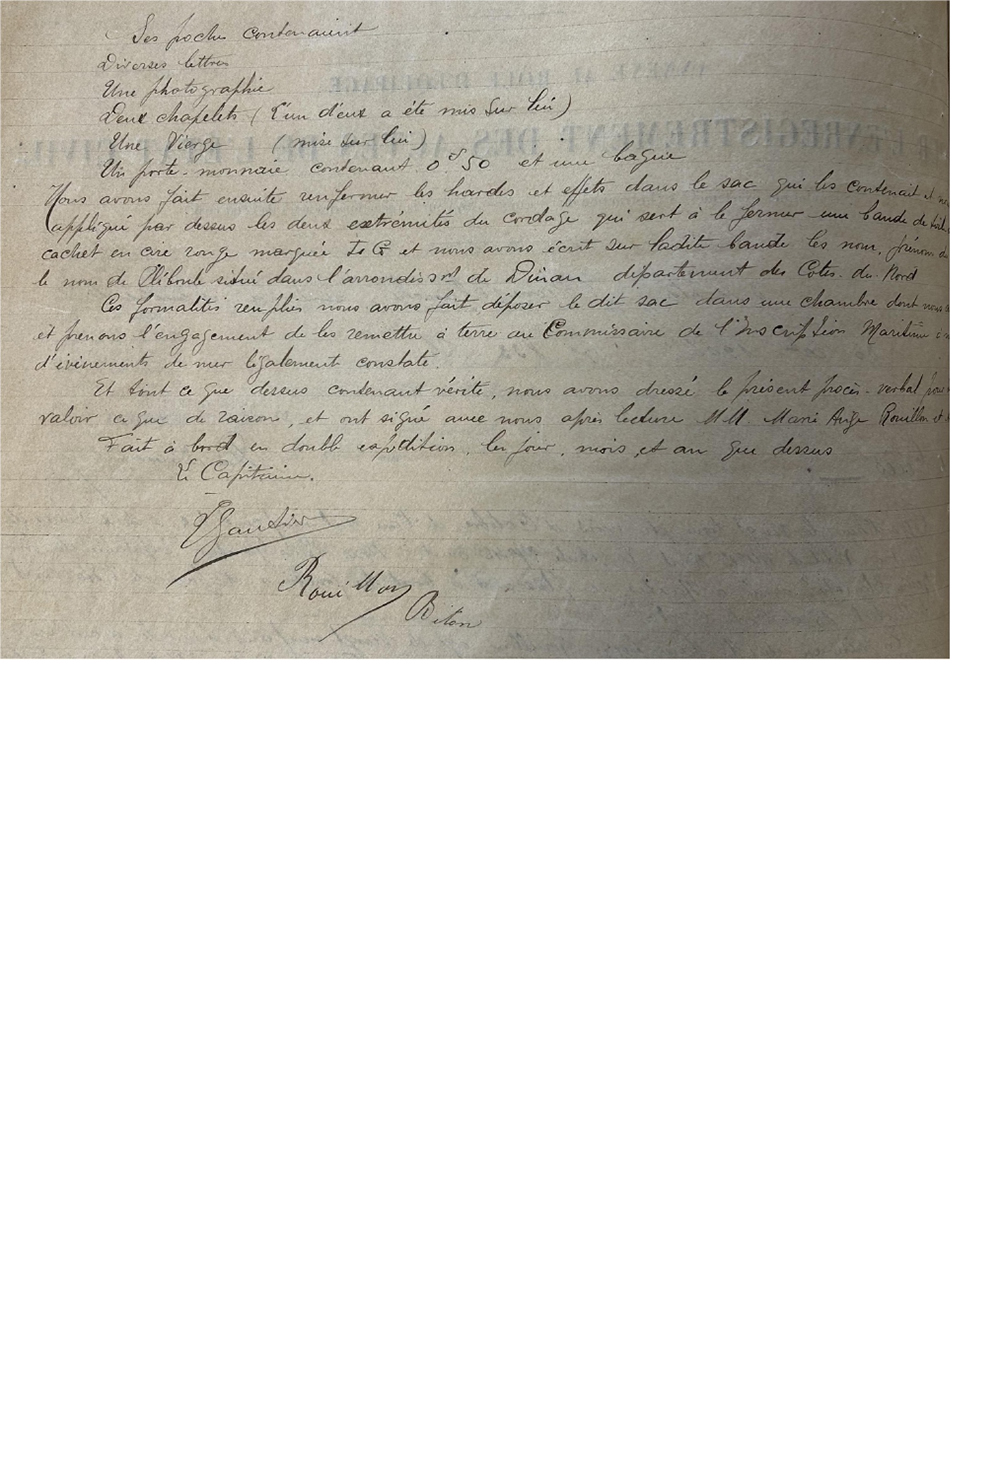 Ses poches contenaient
Diverses lettres
Une photographie
Deux chapelets (l'un d'eux a été mis sur lui)
Une Vierge (mise sur lui)
Un porte-monnaie contenant 0f50 et une bague
Nous avons fait ensuite renfermer les hardes et effets dans le sac qui les contenait et
appliqué par dessus les deux extrémités du cordage qui sert à le fermer une bande de
cachet en cire rouge marquée et nous avons écrit sur ladite bande les nom, prénom
le nom de situé dans l'arrondisst de Dinan département des Côtes-du-Nord
Ces formalités remplies nous avons fait déposer le dit sac dans une chambre dont nous
et prenons l'engagement de les remettre à terre au Commissaire de l'Inscription Maritime
d'évènements de mer légalement constaté.
Et tout ce que dessus contenant vérité, nous avons dressé le présent procès-verbal pour
valoir ce que de raison, et ont signé avec nous après lecture MM Marie Ange Rouillon et
Fait à bord en double expédition, les jour, mois, et an que dessus
Le Capitaine.
Gautier
Rouillon